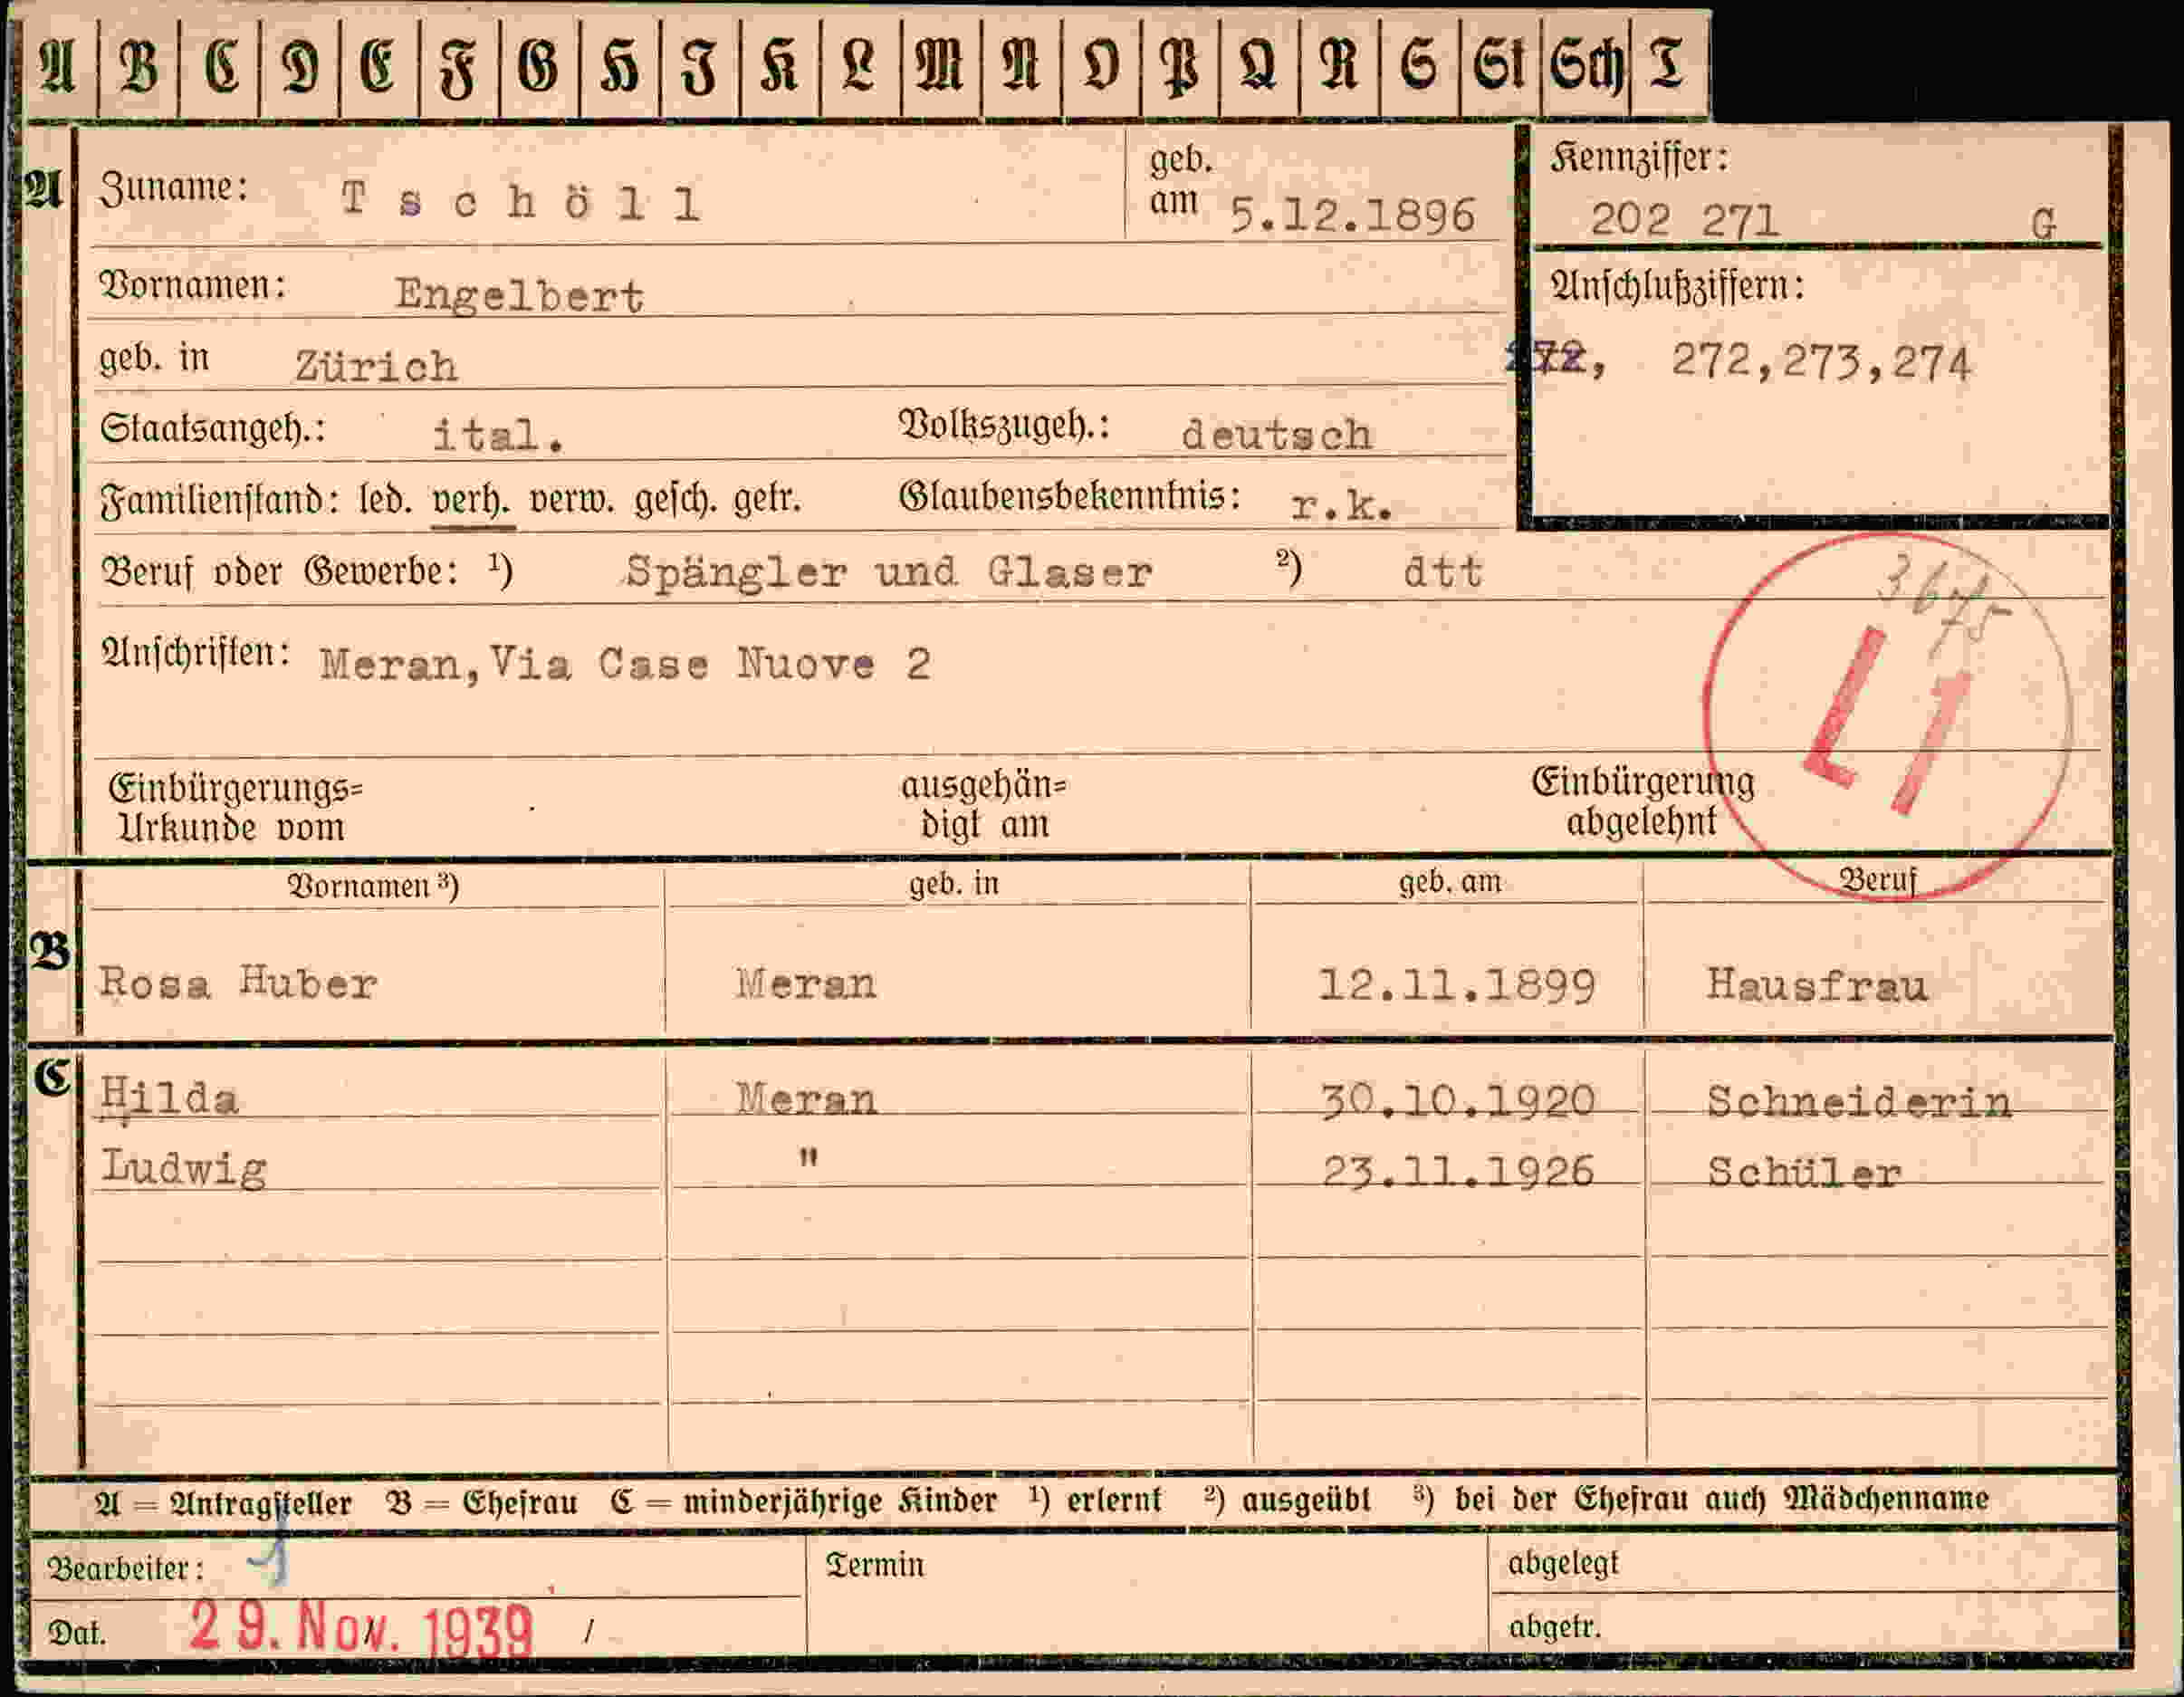 A B C D E F G H I K L M N O P Q R S St Sch T
A Zuname: Tschöll geb. am 5.12.1896 Kennziffer: 202 271 G
Vornamen: Engelbert Anschlußziffern:
geb. in Zürich 272, 272,273,274
Staatsangeh.: ital. Volkszugeh.: deutsch
Familienstand: led. verh. verw. gesch. getr. Glaubensbekenntnis: r.k.
Beruf oder Gewerbe: ¹) Spängler und Glaser ²) dtt
3675
Anschriften: Meran, Via Case Nuove 2
L1
Einbürgerungs= ausgehän= Einbürgerung
Urkunde vom digt am abgelehnt
Vornamen ³) geb. in geb. am Beruf
B Rosa Huber Meran 12.11.1899 Hausfrau
C Hilda Meran 30.10.1920 Schneiderin
Ludwig " 23.11.1926 Schüler
A = Antragsteller B = Ehefrau C = minderjährige Kinder ¹) erlernt ²) ausgeübt ³) bei der Ehefrau auch Mädchenname
Bearbeiter: Termin abgelegt
Dat. 29. Nov. 1939 / abgetr.